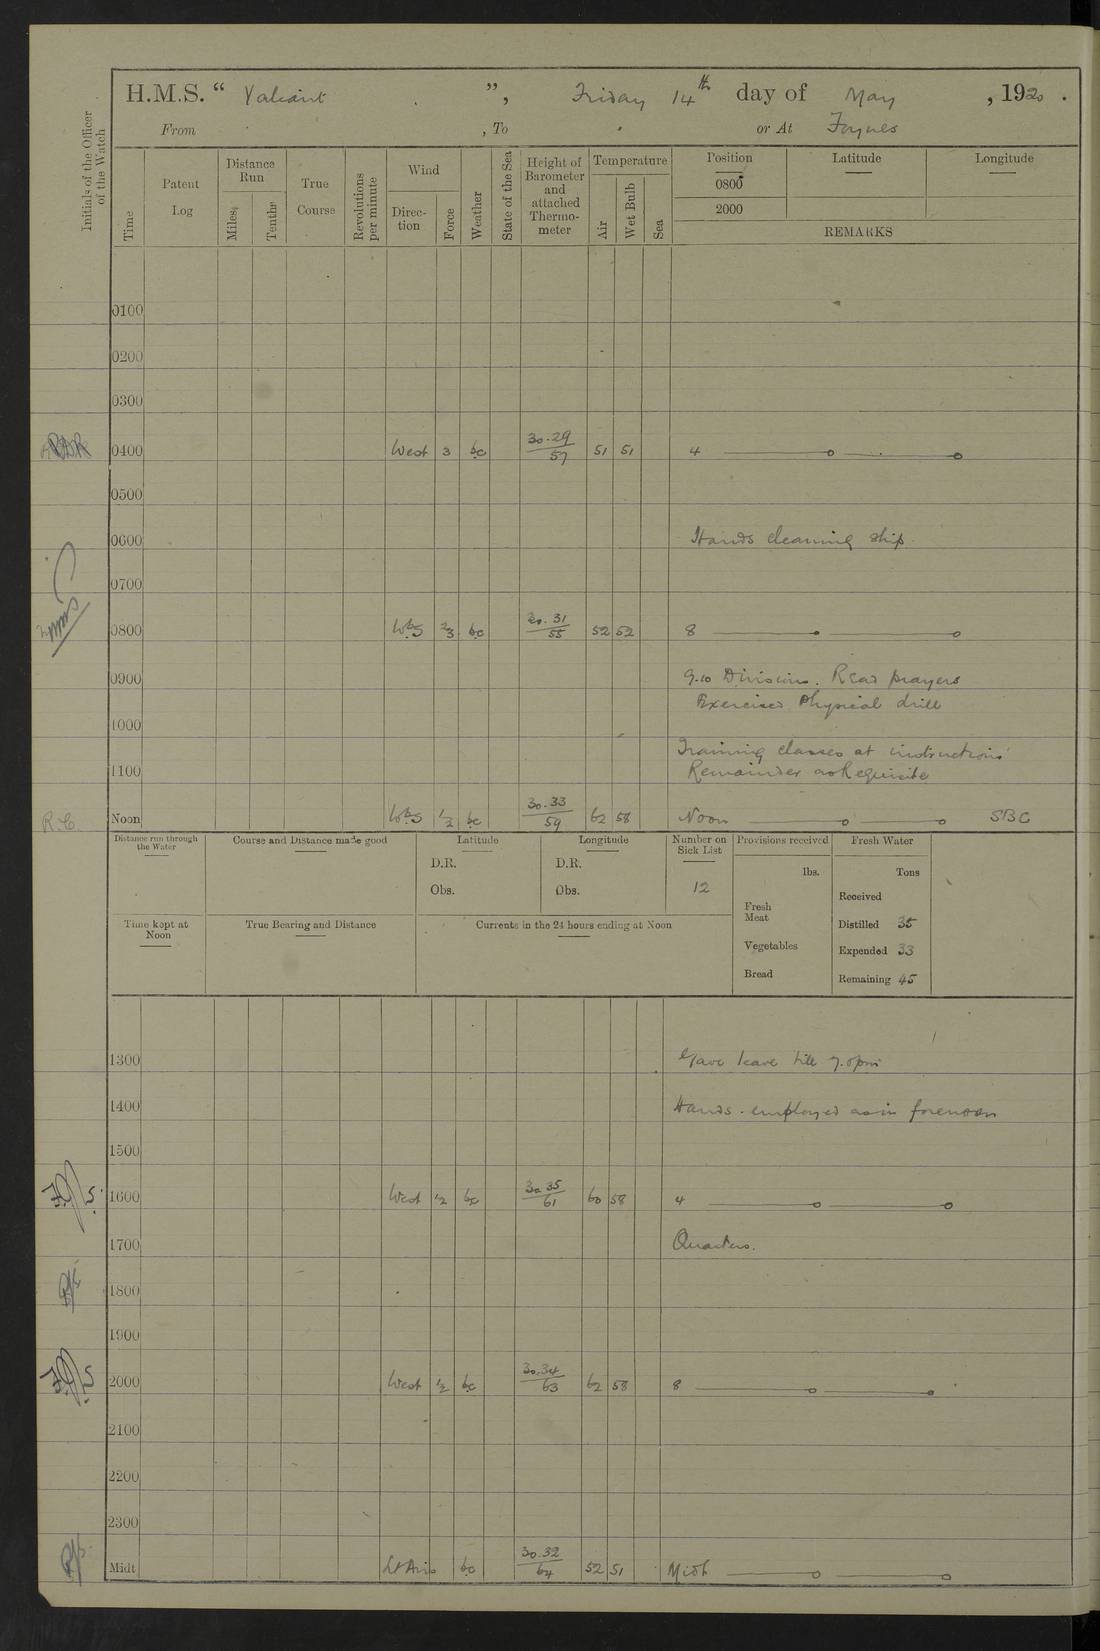 H.M.S. “ Valiant ”, Friday 14th day of May , 1920 .
From , To or At Foynes
Initials of the Officer of the Watch
Time
Patent Log
Distance Run
Miles
Tenths
True Course
Revolutions per minute
Wind
Direction
Force
Weather
State of the Sea
Height of Barometer and attached Thermometer
Temperature
Air
Wet Bulb
Sea
Position Latitude Longitude
0800
2000
REMARKS
0100
0200
0300
0400 West 3 bc 30.29/57 51 51 4
0500
0600 Hands cleaning ship.
0700
0800 WbS 2/3 bc 30.31/55 52 52 8
0900 9.10 Divisions. Read prayers
Exercised Physical drill
1000
Training classes at instructions
1100 Remainder as Requisite
R.C. Noon WbS 1/2 bc 30.33/59 62 58 Noon SBC
Distance run through the Water
Course and Distance made good
Latitude
D.R.
Obs.
Longitude
D.R.
Obs.
Number on Sick List
12
Provisions received
lbs.
Fresh Meat
Vegetables
Bread
Fresh Water
Tons
Received
Distilled 35
Expended 33
Remaining 45
Time kept at Noon
True Bearing and Distance
Currents in the 24 hours ending at Noon
1300 Gave leave till 7.0pm
1400 Hands employed as in forenoon
1500
1600 West 1/2 bc 30.35/61 60 58 4
1700 Quarters.
1800
1900
2000 West 1/2 bc 30.34/63 62 58 8
2100
2200
2300
Midt Lt Airs bc 30.32/64 52 51 Midt